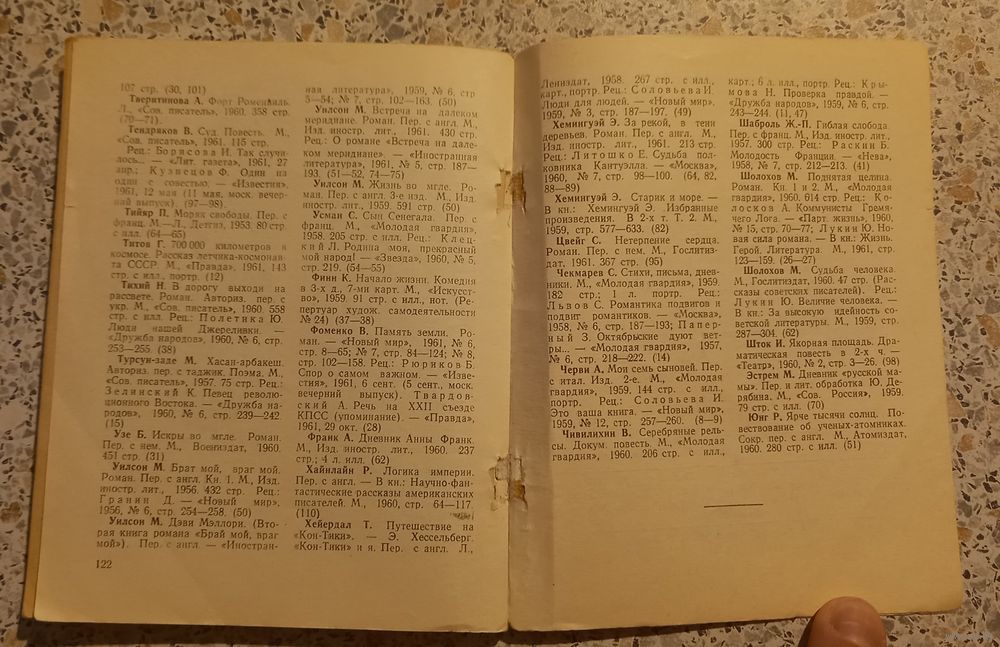 107 стр. (30, 101)
Тверитинова А. Форт Роменвиль.
Л., «Сов. писатель», 1960. 358 стр.
(70—71).
Тендряков В. Суд. Повесть. М.,
«Сов. писатель», 1961. 115 стр.
Рец.: Борисова И. Так случи-
лось... — «Лит. газета», 1961, 27
апр.; Кузнецов Ф. Один на
один с совестью. — «Известия»,
1961, 12 мая (11 мая, моск. вечер-
ний выпуск). (97—98).
Тийяр П. Моряк свободы. Пер. с
франц. М.—Л., Детгиз, 1953. 80 стр.
с илл. (64—65)
Титов Г. 700 000 километров в
космосе. Рассказ летчика-космонав-
та СССР. М., «Правда», 1961. 143
стр. с илл., портр. (12)
Тихий Н. В дорогу выходи на
рассвете. Роман. Авториз. пер. с
укр. М., «Сов. писатель», 1960 558
стр. с илл. Рец.: Полетика Ю.
Люди нашей Джереливки. —
«Дружба народов», 1960, № 6, стр.
253—255. (38)
Турсун-заде М. Хасан-арбакеш.
Авториз. пер. с таджик. Поэма. М.,
«Сов. писатель», 1957. 75 стр. Рец.:
Зелинский К. Певец револю-
ционного Востока. — «Дружба на-
родов», 1960, № 6, стр. 239—242
(15)
Узе Б. Искры во мгле. Роман.
Пер. с нем. М., Воениздат, 1960.
451 стр. (31)
Уилсон М. Брат мой, враг мой.
Роман. Пер. с англ. Кн. 1. М., Изд.
иностр. лит., 1956. 432 стр. Рец.:
Гранин Д. — «Новый мир»,
1956, № 6, стр. 254—258. (50)
Уилсон М. Дэви Мэллори. (Вто-
рая книга романа «Брай мой, враг
мой»). Пер. с англ. — «Иностран-
122
ная литература», 1959, № 6, стр
5—54; № 7, стр. 102—163. (50)
Уилсон М. Встреча на далеком
меридиане. Роман. Пер. с англ. М.,
Изд. иностр. лит., 1961. 430 стр.
Рец.: О романе «Встреча на дале-
ком меридиане». — «Иностранная
литература», 1961, № 5, стр. 187—
193. (51—52, 74—75)
Уилсон М. Жизнь во мгле. Ро-
ман. Пер. с англ. 3-е изд. М., Изд.
иностр. лит., 1959. 591 стр. (50)
Усман С. Сын Сенегала. Пер. с
франц. М., «Молодая гвардия»,
1958. 205 стр. с илл. Рец.: Клец-
кий Л. Родина моя, прекрасный
мой народ! — «Звезда», 1960, № 5,
стр. 219. (54—55)
Финн К. Начало жизни. Комедия
в 3-х д., 7-ми карт. М., «Искусст-
во», 1959. 91 стр. с илл., нот. (Ре-
пертуар худож. самодеятельности
№ 24) (37—38)
Фоменко В. Память земли. Ро-
ман. — «Новый мир», 1961, № 6,
стр. 8—65; № 7, стр. 84—124; № 8,
стр. 102—158. Рец.: Рюриков Б.
Спор о самом важном. — «Изве-
стия», 1961, 6 сент. (5 сент., моск.
вечерний выпуск). Твардов-
ский А. Речь на XXII съезде
КПСС (упоминание). — «Правда»,
1961, 29 окт. (28)
Франк А. Дневник Анны Франк.
М., Изд. иностр. лит., 1960. 237
стр.; 4 л. илл. (62)
Хайнлайн Р. Логика империи.
Пер. с англ. — В кн.: Научно-фан-
тастические рассказы американских
писателей. М., 1960, стр. 64—117.
(110)
Хейердал Т. Путешествие на
«Кон-Тики». — Э. Хессельберг.
«Кон-Тики» и я. Пер. с англ. Л.,
Лениздат, 1958. 267 стр. с илл.,
карт., портр. Рец.: Соловьева И.
Люди для людей. — «Новый мир»,
1959, № 3, стр. 187—197. (49)
Хемингуэй Э. За рекой, в тени
деревьев. Роман. Пер. с англ. М.,
Изд. иностр. лит., 1961. 213 стр.
Рец.: Литошко Е. Судьба пол-
ковника Кантуэлла. — «Москва»,
1960, № 7, стр. 98—100. (64, 82,
88—89)
Хемингуэй Э. Старик и море. —
В кн.: Хемингуэй Э. Избранные
произведения. В 2-х т. Т. 2. М.,
1959, стр. 577—633. (82)
Цвейг С. Нетерпение сердца.
Роман. Пер. с нем. М., Гослитиз-
дат, 1961. 367 стр. (95)
Чекмарев С. Стихи, письма, днев-
ники. М., «Молодая гвардия», 1959.
182 стр.; 1 л. портр. Рец.:
Львов С. Романтика подвигов и
подвиг романтиков. — «Москва»,
1958, № 6, стр. 187—193; Папер-
ный З. Октябрьские дуют вет-
ры... — «Молодая гвардия», 1957,
№ 6, стр. 218—222. (14)
Черви А, Мои семь сыновей. Пер.
с итал. Изд. 2-е. М., «Молодая
гвардия», 1959. 144 стр. с илл.,
портр. Рец.: Соловьева И
Это ваша книга. — «Новый мир»,
1959, № 12, стр. 257—260. (8—9)
Чивилихин В. Серебряные рель-
сы. Докум. повесть. М., «Молодая
гвардия», 1960. 206 стр. с илл.,
карт.; 6 л. илл., портр. Рец.: Кры-
мова Н. Проверка правдой. —
«Дружба народов», 1959, № 6, стр.
243—244. (11, 47)
Шаброль Ж.-П. Гиблая слобода.
Пер. с франц. М., Изд. иностр. лит.,
1957. 300 стр. Рец.: Раскин Б.
Молодость Франции. — «Нева»,
1958, № 7, стр. 212—213. (41)
Шолохов М. Поднятая целина.
Роман. Кн. 1 и 2. М., «Молодая
гвардия», 1960. 614 стр. Рец.: Ко-
лосков А. Коммунисты Гремя-
чего Лога. — «Парт. жизнь», 1960,
№ 15, стр. 70—77; Лукин Ю. Но-
вая сила романа. — В кн.: Жизнь.
Герой. Литература. М., 1961, стр.
123—159. (26—27)
Шолохов М. Судьба человека.
М., Гослитиздат, 1960. 47 стр. (Рас-
сказы советских писателей). Рец.:
Лукин Ю. Величие человека. —
В кн.: За высокую идейность со-
ветской литературы. М., 1959, стр.
287—304. (62)
Шток И. Якорная площадь. Дра-
матическая повесть в 2-х ч. —
«Театр», 1960, № 2, стр. 3—26. (98)
Эстрем М. Дневник «русской ма-
мы». Пер. и лит. обработка Ю. Де-
рябина. М., «Сов. Россия», 1959.
79 стр. с илл. (70)
Юнг Р, Ярче тысячи солнц. По-
вествование об ученых-атомниках.
Сокр. пер. с англ. М., Атомиздат,
1960. 280 стр. с илл. (51)